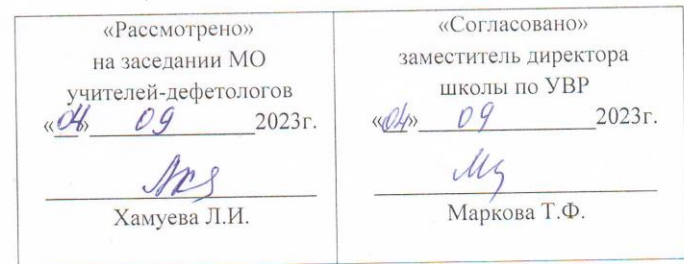 «Рассмотрено»
на заседании МО
учителей-дефетологов
«04» 09 2023г.
Хамуева Л.И.
«Согласовано»
заместитель директора
школы по УВР
«04» 09 2023г.
Маркова Т.Ф.